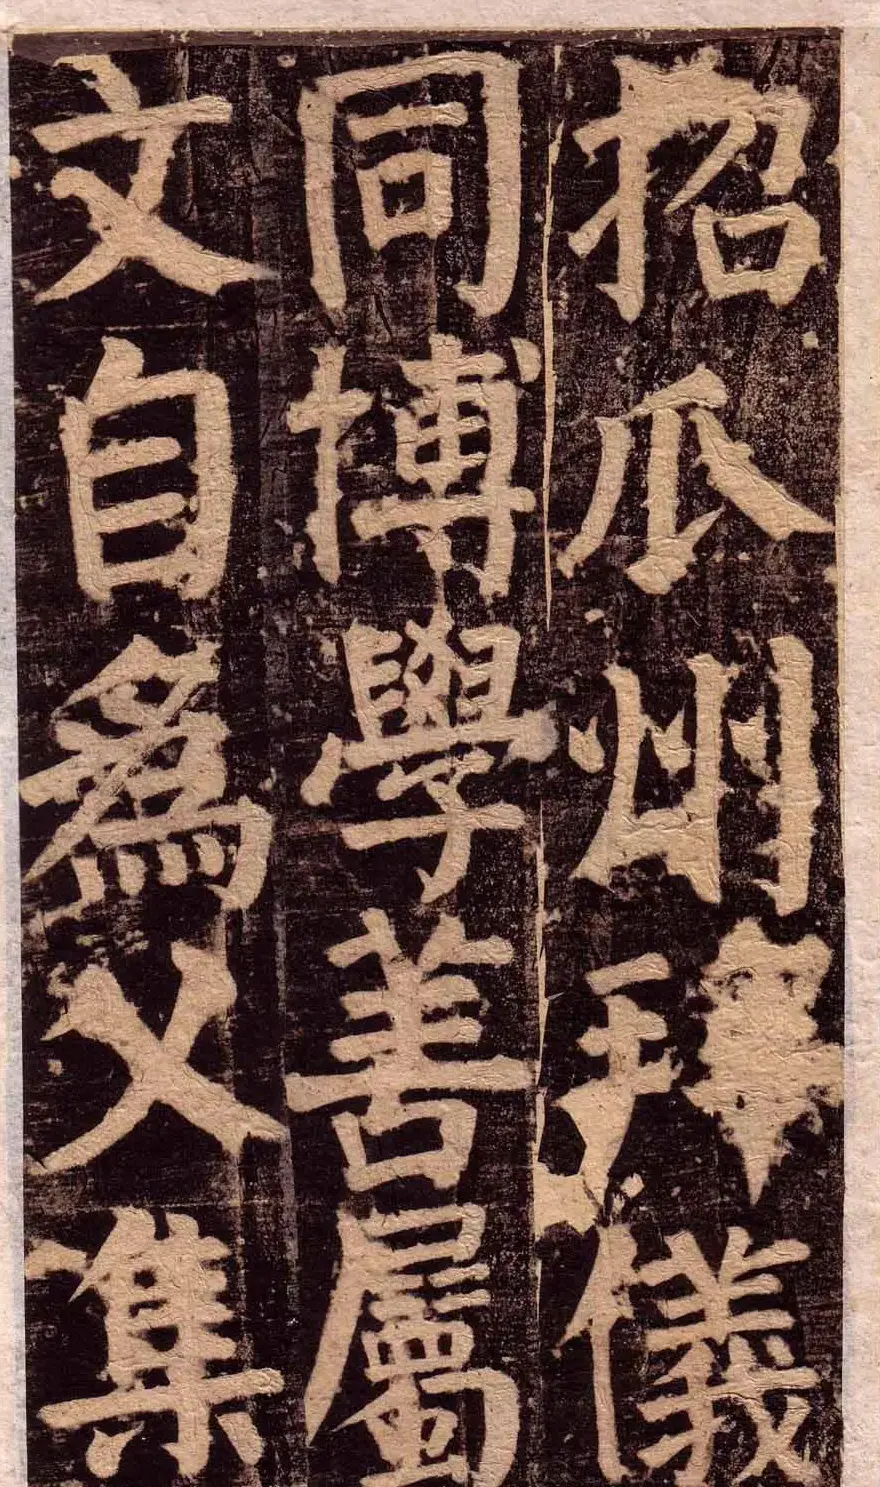 招瓜州拜儀
同博學善屬
文自爲父集